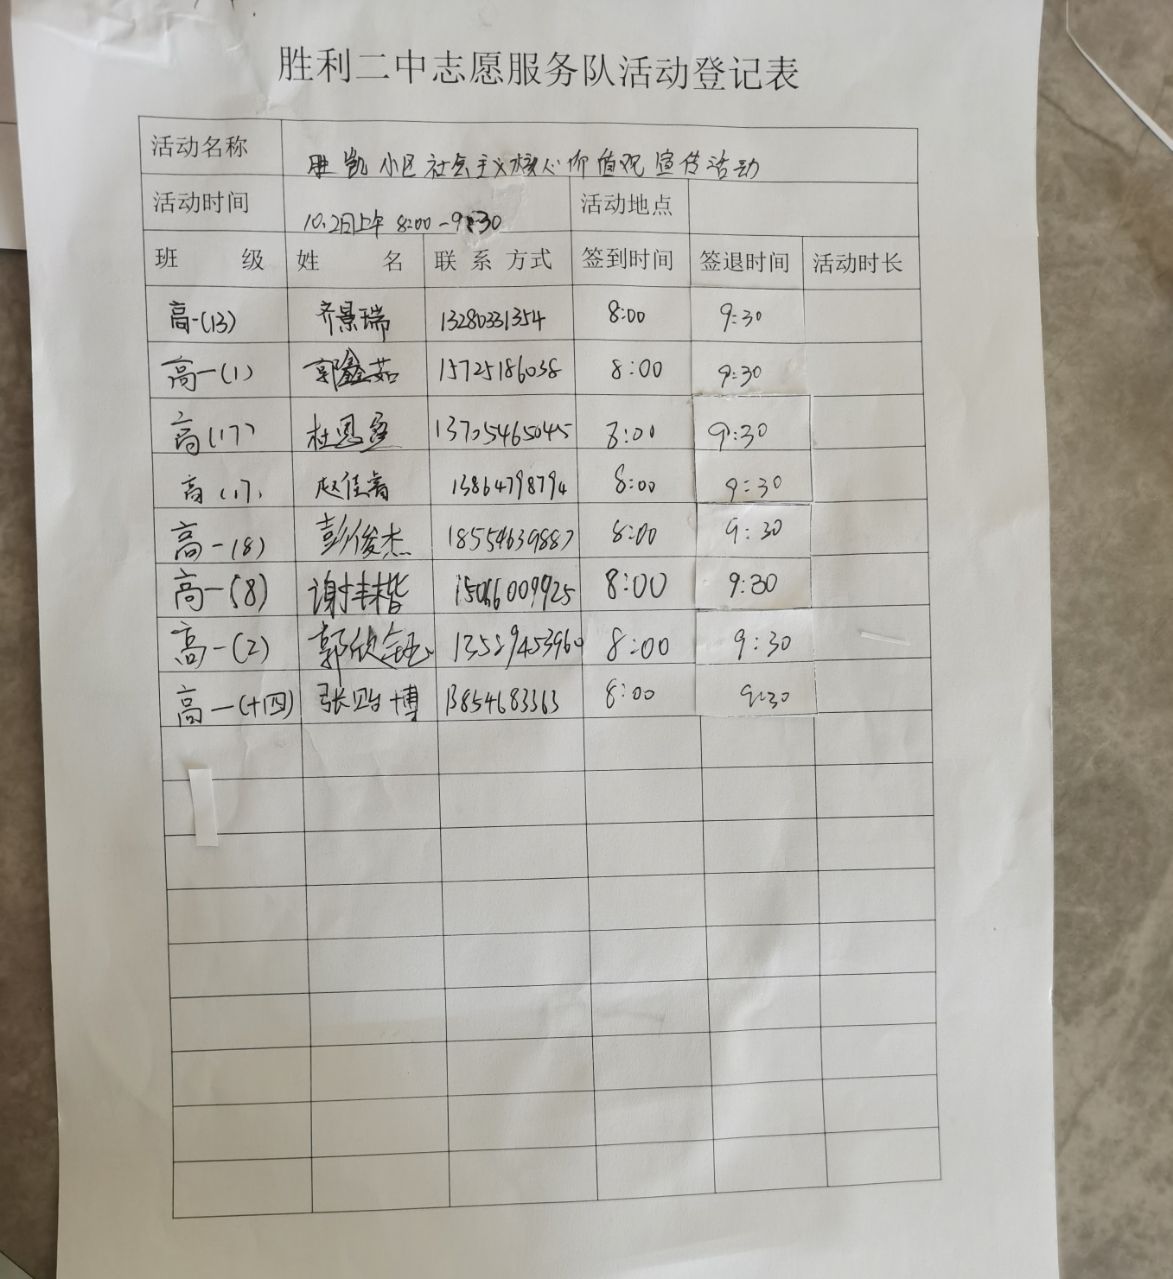 胜利二中志愿服务队活动登记表
活动名称 胜凯小区社会主义核心价值观宣传活动
活动时间 10.2日上午 8:00-9:30 活动地点
班 级 姓 名 联 系 方式 签到时间 签退时间 活动时长
高一(13) 齐景瑞 13280331354 8:00 9:30
高一(1) 郭鑫茹 15725186038 8:00 9:30
高(17) 杜恩 13705465045 8:00 9:30
高(17) 赵佳 13864798794 8:00 9:30
高一(8) 彭俊杰 18554639887 8:00 9:30
高一(8) 谢丰楷 15066009925 8:00 9:30
高一(2) 郭欣钰 13529453960 8:00 9:30
高一(十四) 张贻博 13854683363 8:00 9:30